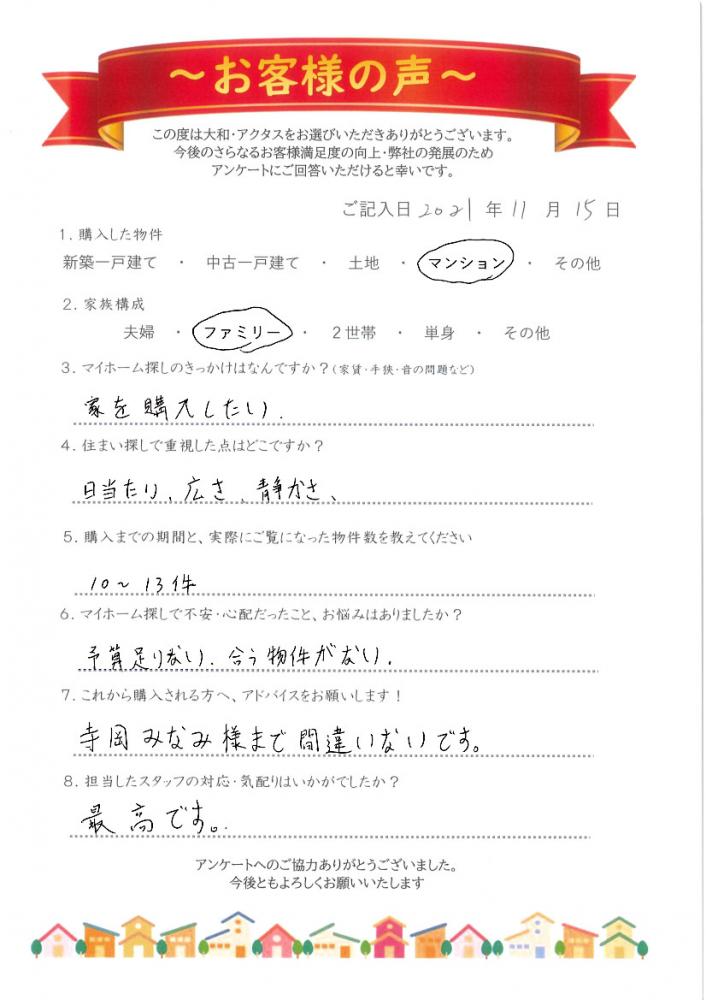 ～お客様の声～
この度は大和・アクタスをお選びいただきありがとうございます。
今後のさらなるお客様満足度の向上・弊社の発展のため
アンケートにご回答いただけると幸いです。
ご記入日 2021 年 11 月 15 日
1. 購入した物件
新築一戸建て ・ 中古一戸建て ・ 土地 ・ マンション ・ その他
2. 家族構成
夫婦 ・ ファミリー ・ 2世帯 ・ 単身 ・ その他
3. マイホーム探しのきっかけはなんですか？(家賃・手狭・音の問題など)
家を購入したい.
4. 住まい探しで重視した点はどこですか？
日当たり、広さ、静かさ、
5. 購入までの期間と、実際にご覧になった物件数を教えてください
10～13件
6. マイホーム探しで不安・心配だったこと、お悩みはありましたか？
予算足りない. 合う物件がない.
7. これから購入される方へ、アドバイスをお願いします！
寺岡みなみ様まで間違いないです。
8. 担当したスタッフの対応・気配りはいかがでしたか？
最高です。.
アンケートへのご協力ありがとうございました。
今後ともよろしくお願いいたします